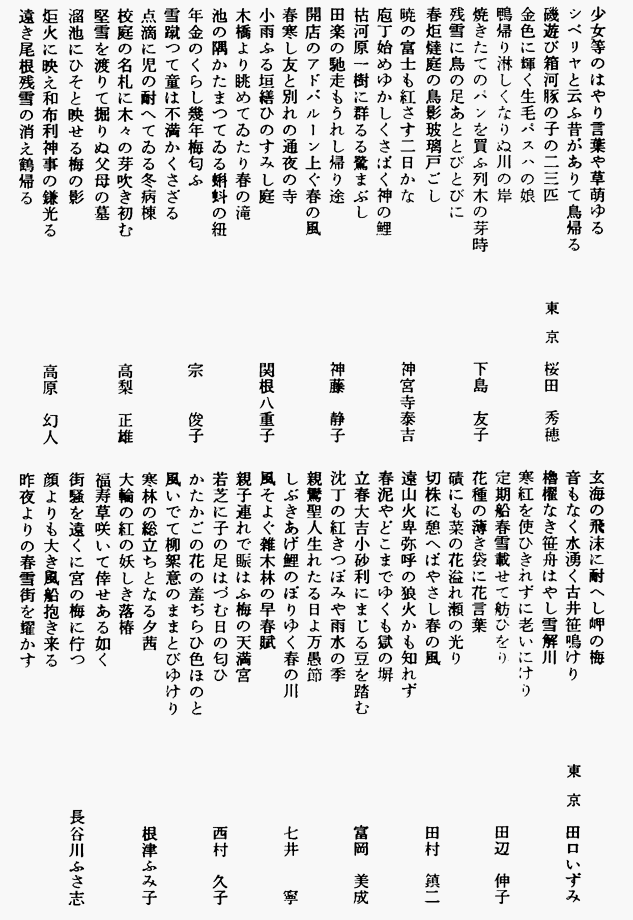 少女等のはやり言葉や草萌ゆる
シベリヤと云ふ昔がありて鳥帰る
磯遊び箱河豚の子の二三匹
東京 桜田 秀穂
金色に輝く生毛パスハの娘
鴨帰り淋しくなりぬ川の岸
焼きたてのパンを買ふ列木の芽時
下島 友子
残雪に鳥の足あととびとびに
春炬燵庭の鳥影玻璃戸ごし
暁の富士も紅さす二日かな
神宮寺泰吉
庖丁始めゆかしくさばく神の鯉
枯河原一樹に群るる鷺まぶし
田楽の馳走もうれし帰り途
神藤 静子
開店のアドバルーン上ぐ春の風
春寒し友と別れの通夜の寺
小雨ふる垣繕ひのすみし庭
関根八重子
木橋より眺めてゐたり春の滝
池の隅かたまつてゐる蝌蚪の紐
年金のくらし幾年梅匂ふ
宗 俊子
雪蹴つて童は不満かくさざる
点滴に児の耐へてゐる冬病棟
校庭の名札に木々の芽吹き初む
高梨 正雄
堅雪を渡りて掘りぬ父母の墓
溜池にひそと映せる梅の影
炬火に映え和布利神事の鎌光る
高原 幻人
遠き尾根残雪の消え鶴帰る
玄海の飛沫に耐へし岬の梅
音もなく水湧く古井笹鳴けり
東京 田口いずみ
櫓櫂なき笹舟はやし雪解川
寒紅を使ひきれずに老いにけり
定期船春雪載せて舫ひをり
田辺 伸子
花種の薄き袋に花言葉
磧にも菜の花溢れ瀬の光り
切株に憩へばやさし春の風
田村 鎮二
遠山火卑弥呼の狼火かも知れず
春泥やどこまでゆくも獄の塀
立春大吉小砂利にまじる豆を踏む
富岡 美成
沈丁の紅きつぼみや雨水の季
親鸞聖人生れたる日よ万愚節
しぶきあげ鯉のぼりゆく春の川
七井 寧
風そよぐ雑木林の早春賦
親子連れで賑はふ梅の天満宮
若芝に子の足はづむ日の匂ひ
西村 久子
かたかごの花の羞ぢらひ色ほのと
風いでて柳絮意のままとびゆけり
寒林の総立ちとなる夕茜
根津ふみ子
大輪の紅の妖しき落椿
福寿草咲いて倖せある如く
街騒を遠くに宮の梅に佇つ
長谷川ふさ志
顔よりも大き風船抱き来る
昨夜よりの春雪街を耀かす